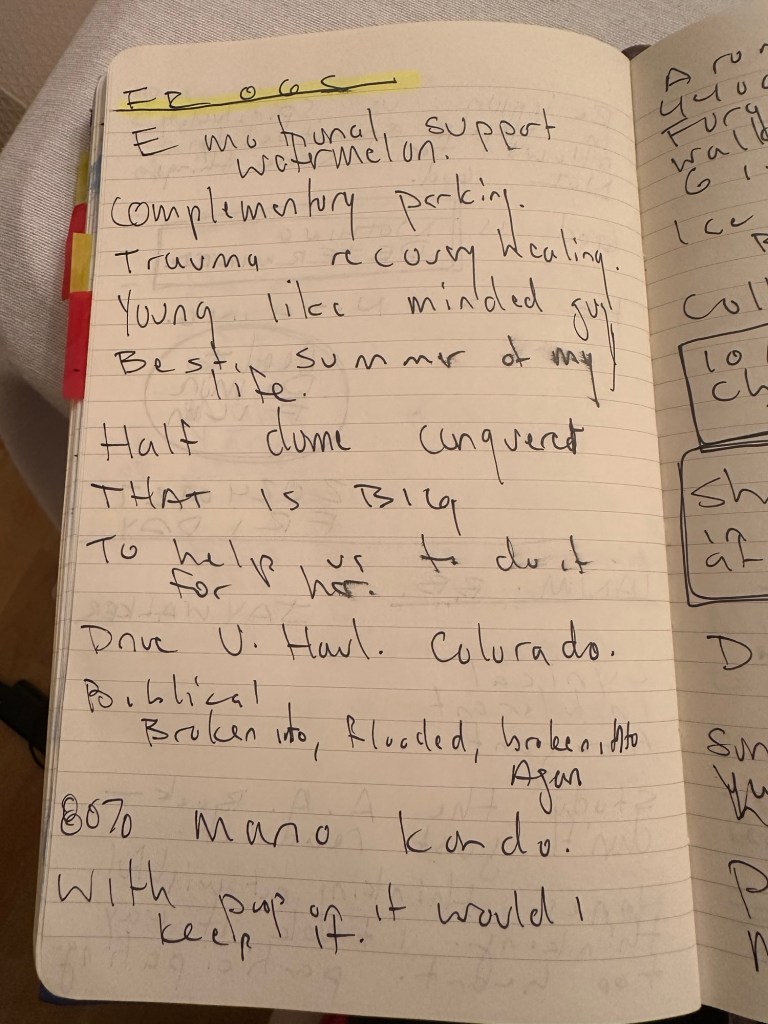 EP 065
Emotional support
watermelon.
Complementory parking.
Trauma recovery healing.
Young like minded guy
Best summer of my
life.
Half dome conquered
THAT IS BIG
To help us to do it
for her.
Drive U. Haul. Colorado.
Biblical
Broken into, flooded, broken into
Again
80% mano kondo.
With poop on it would I
keep it.
A
440
wall
61
Ice
Coll
10
Ch
Sh
in
at
D
P